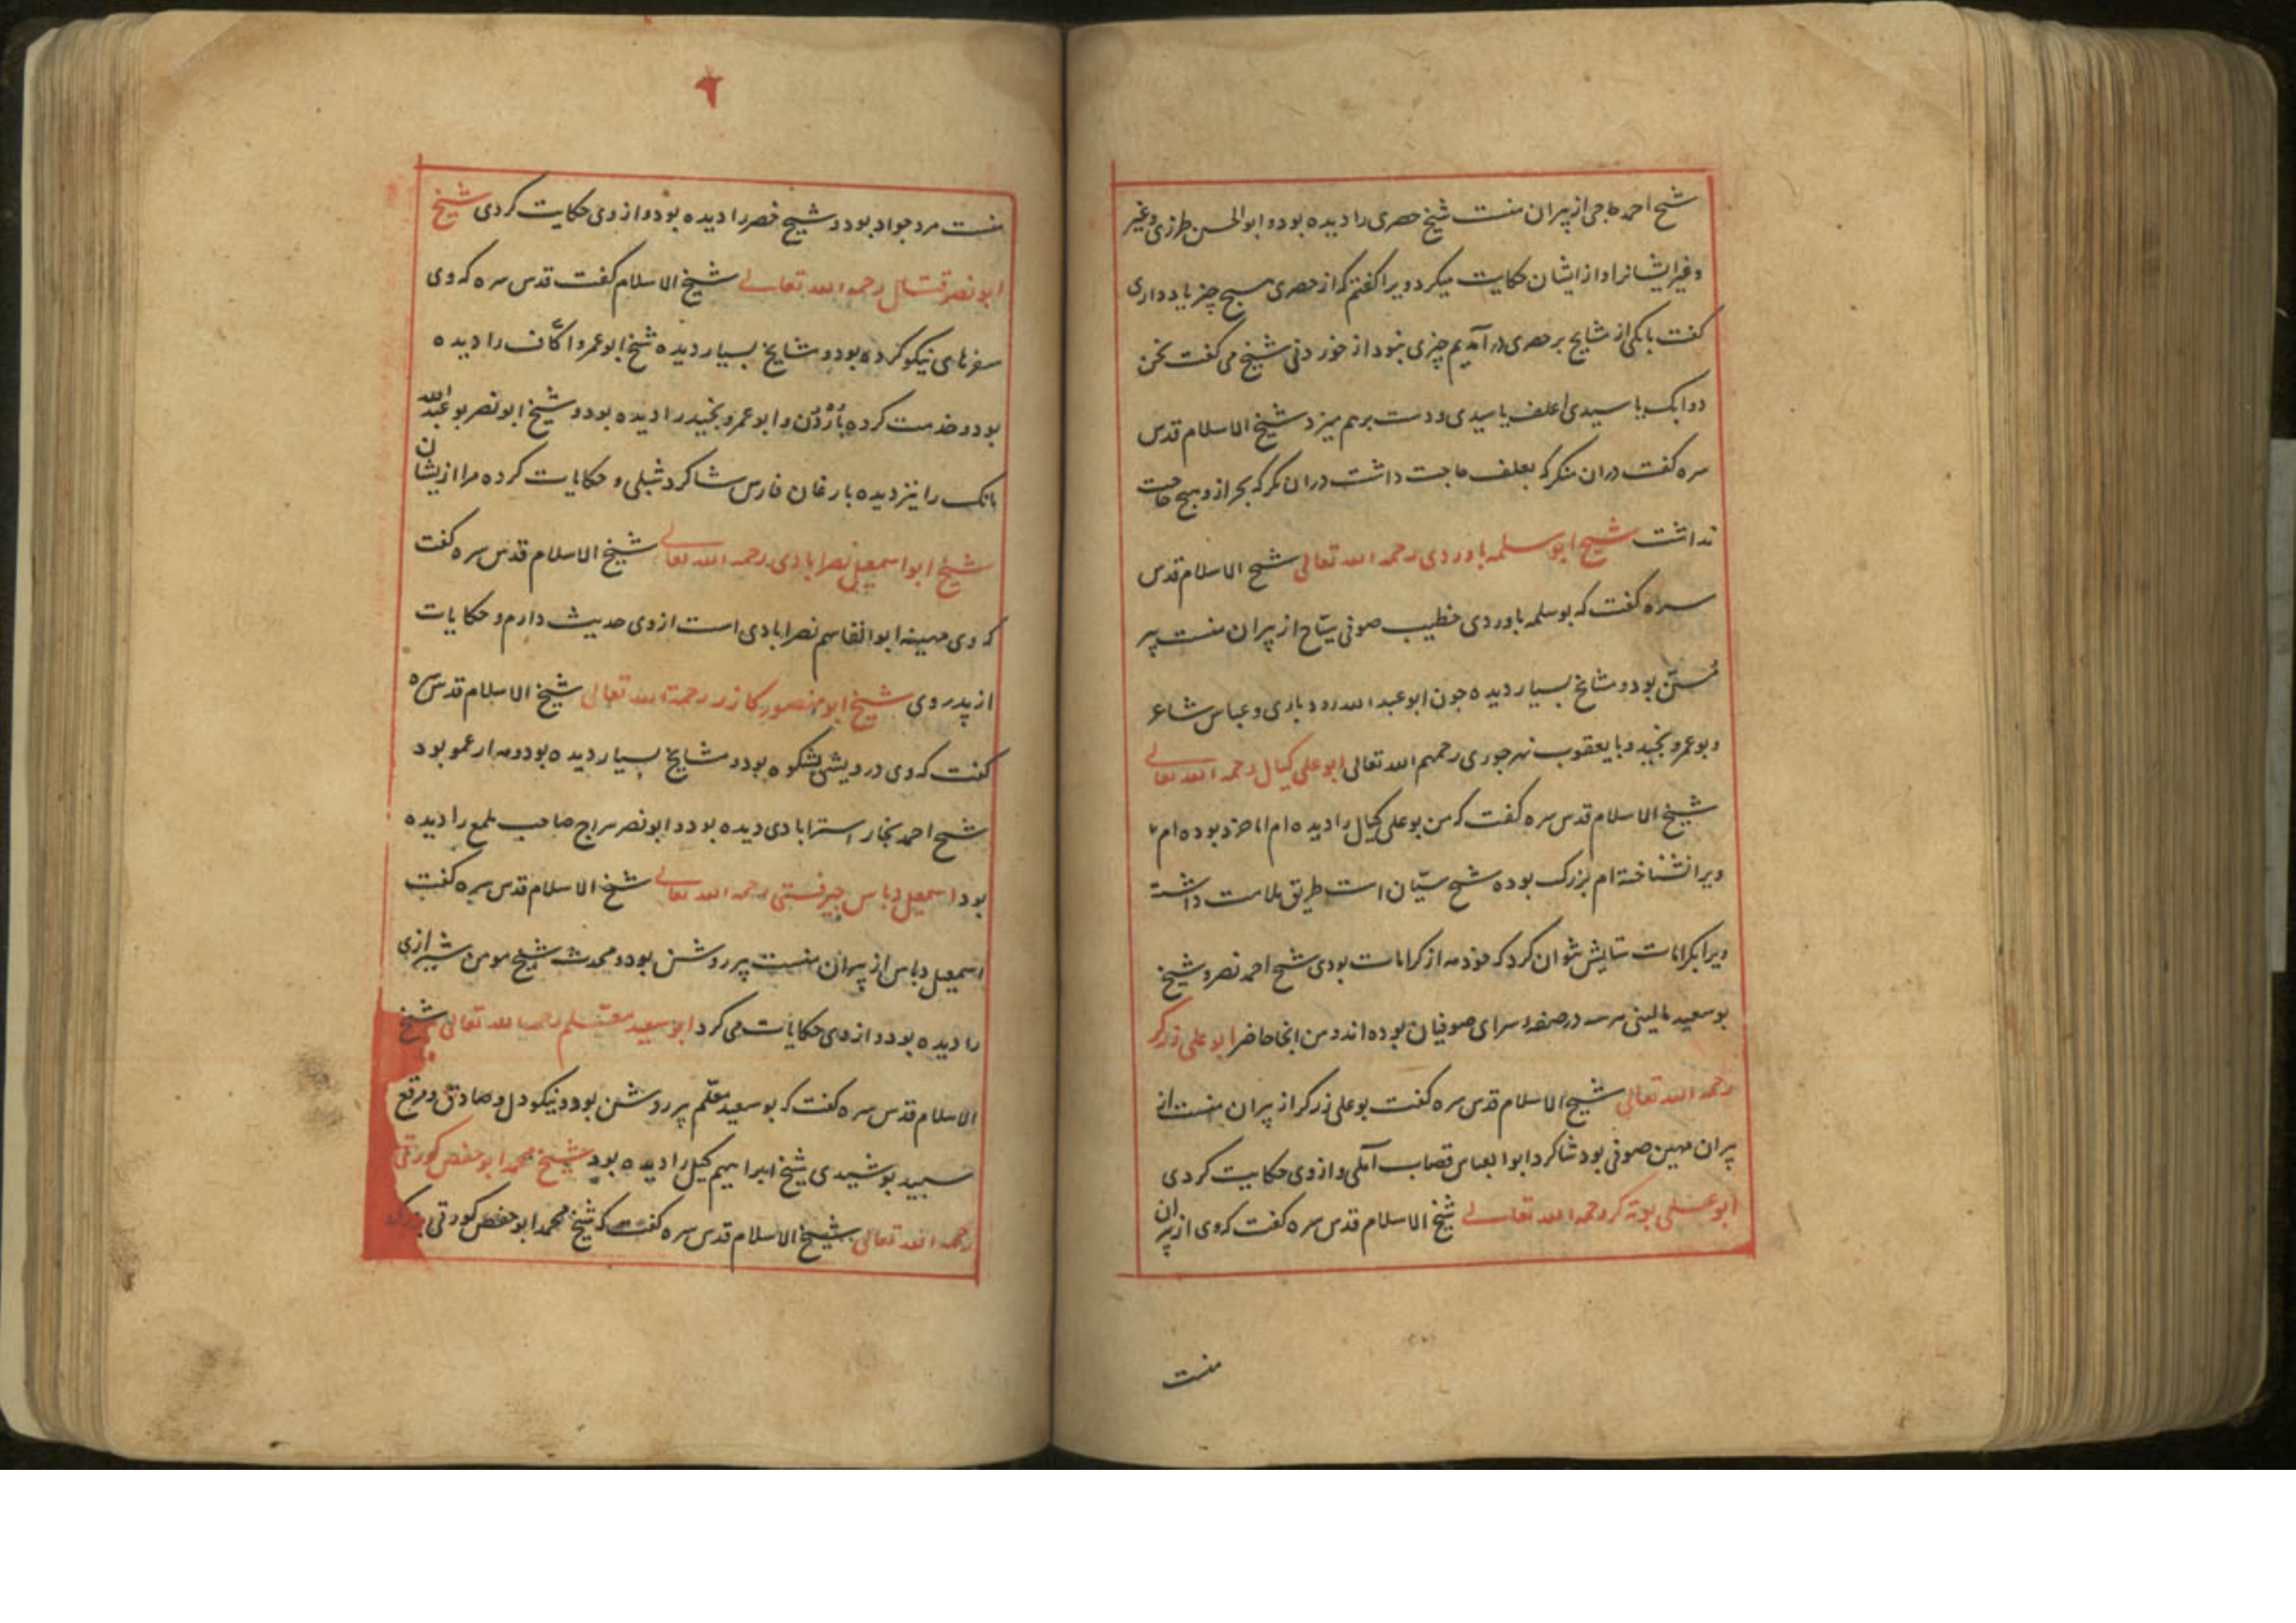 شیخ احمد حاجی از پیران منست شیخ حصری را دیده بود و ابوالحسن طرزی و غیر
و غیر ایشانرا و از ایشان حکایت میکرد ویرا گفتم که از حصری هیچ چیز یاد داری
گفت با یکی از مشایخ بر حصری در آمدیم چیزی نبود از خوردنی شیخ می گفت نحن
دوابک یا سیدی اعلف یا سیدی و دست بر هم میزد شیخ الاسلام قدس
سره گفت در ان منکر که بعلف حاجت داشت در ان نکر که بجز از و هیچ حاجت
نداشت شیخ ابو سلمه باوردی رحمه الله تعالی شیخ الاسلام قدس
سره گفت که بوسلمه باوردی خطیب صوفی سیّاح از پیران منست پیر
مُسنّ بود و مشایخ بسیار دیده جون ابو عبد الله رودباری و عباس شاعر
و بو عمرو نجید و با یعقوب نهرجوری رحمهم الله تعالی ابو علی کیال رحمه الله تعالی
شیخ الاسلام قدس سره گفت که من بو علی کیال را دیده ام اما خرد بوده ام
ویرا نشناخته ام بزرک بوده شیخ سیّان است طریق ملامت داشت
ویرا بکرامات ستایش نتوان کرد که خود مه از کرامات بودی شیخ احمد نصر و شیخ
بو سعید مالینی هر سه در صفه سرای صوفیان بوده اند و من انجا حاضر ابو علی زرکر
رحمه الله تعالی شیخ الاسلام قدس سره گفت بو علی زرکر از پیران منست از
پیران مهین صوفی بود شاکرد ابو العباس قصاب آملی و از وی حکایت کردی
ابو علی بوته کر رحمه الله تعالی شیخ الاسلام قدس سره گفت که وی از پیران
منست
منست مرد جواد بود و شیخ خصر را دیده بود و از وی حکایت کردی شیخ
ابو نصر قتال رحمه الله تعالی شیخ الاسلام گفت قدس سره که وی
سفرهای نیکو کرده بود و مشایخ بسیار دیده شیخ ابو عمرو اکّاف را دیده
بود و خدمت کرده و ابو عمرو نجید را دیده بود و شیخ ابو نصر بو عبد الله
مانک را نیز دیده بارغان فارس شاکرد شبلی و حکایات کرده مرا از یشان
شیخ ابو اسمعیل نصرابادی رحمه الله تعالی شیخ الاسلام قدس سره گفت
که وی مهینه ابو القاسم نصرابادی است از وی حدیث دارم و حکایات
از پدر وی شیخ ابو منصور کازر رحمة الله تعالی شیخ الاسلام قدس سره
گفت که وی درویشی بشکوه بود و مشایخ بسیار دیده بود و مه از عمو بود
شیخ احمد نجار استرابادی دیده بود و ابو نصر سراج صاحب لمع را دیده
بود اسمعیل دباس جیرفتی رحمه الله تعالی شیخ الاسلام قدس سره گفت
اسمعیل دباس از پیران منست پیر روشن بود و محدث شیخ مومن شیرازی
را دیده بود و از وی حکایات می کرد ابو سعید معلم رحمه الله تعالی شیخ
الاسلام قدس سره گفت که بو سعید معلّم پیر روشن بود و نیکو دل و صادق و مرقع
سبید بوشیدی شیخ ابراهیم کیل را دیده بود شیخ محمد ابو حفص کورتی
رحمه الله تعالی شیخ الاسلام قدس سره گفت که شیخ محمد ابو حفص کورتی بزرک